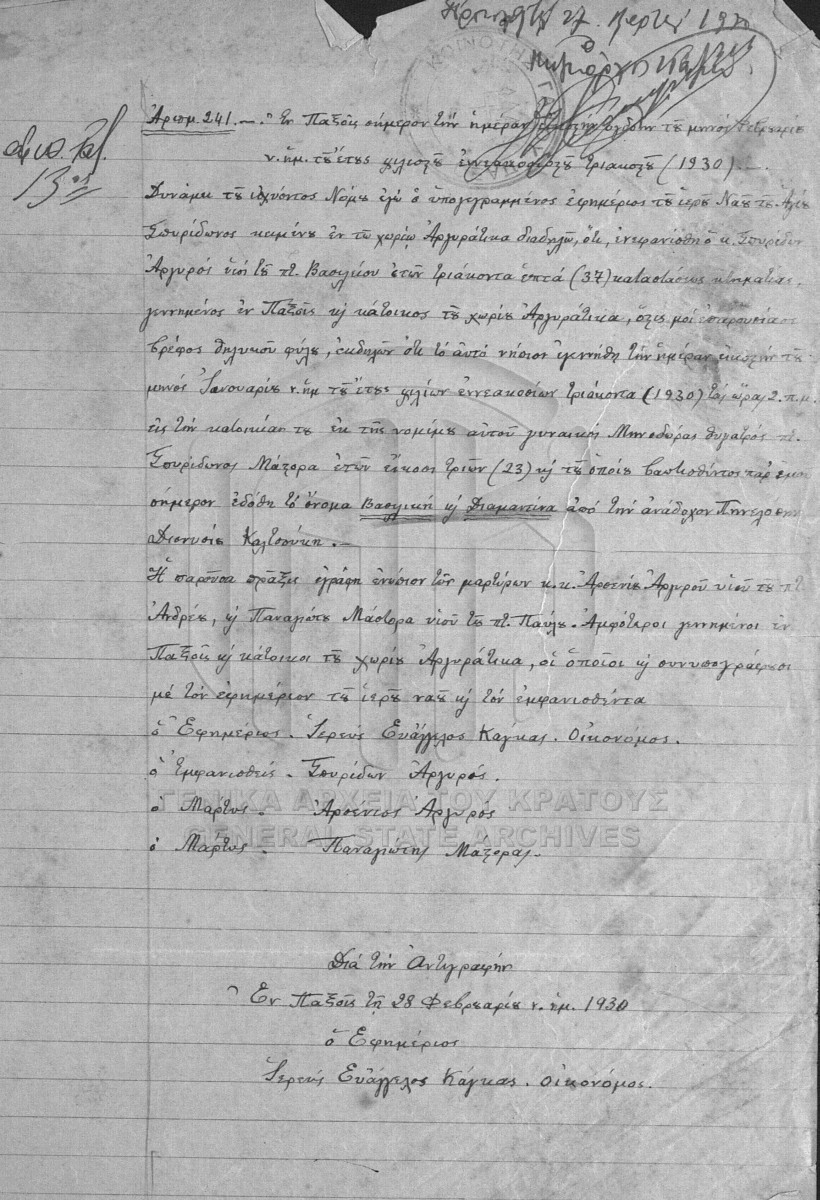 27
ΚΟΙΝΟΤΗΣ
αριθ.
13
Ἀριθμ. 241. — Ἐν Παξοῖς σήμερον τὴν ἡμέραν εἰκοστὴν ὀγδόην τοῦ μηνὸς Φεβρουαρίου
ν. ἡμ. τοῦ ἔτους χιλιοστοῦ ἐννεακοσιοστοῦ τριακοστοῦ (1930). —
Δυνάμει τοῦ ἰσχύοντος Νόμου ἐγὼ ὁ ὑπογεγραμμένος ἐφημέριος τοῦ ἱεροῦ Ναοῦ τοῦ Ἁγίου
Σπυρίδωνος κειμένου ἐν τῷ χωρίῳ Ἀργυράτικα διαδηλῶ, ὅτι, ἐνεφανίσθη ὁ κ. Σπυρίδων
Ἀργυρός υἱὸς τοῦ πτ. Βασιλείου ἐτῶν τριάκοντα ἑπτά (37) καταστάσεως κτηματίας,
γεννημένος ἐν Παξοῖς κὶ κάτοικος τοῦ χωρίου Ἀργυράτικα, ὅστις μοὶ ἐπαρουσίασε
βρέφος θηλυκοῦ φύλου, ἐκδηλῶν ὅτι τὸ αὐτὸ νήπιον ἐγεννήθη τὴν ἡμέραν εἰκοστὴν τοῦ
μηνός Ἰανουαρίου ν. ἡμ τοῦ ἔτους χιλίων ἐννεακοσίων τριάκοντα (1930) τὰς ὥρας 2. π.μ.
εἰς τὴν κατοικίαν του ἐκ τῆς νομίμου αὐτοῦ γυναικὸς Μηνοδώρας θυγατρὸς πτ.
Σπυρίδωνος Μάστορα ἐτῶν εἴκοσι τριῶν (23) κὶ τοῦ ὁποίου βαπτισθέντος παρ' ἐμοῦ
σήμερον ἐδόθη τὸ ὄνομα Βασιλικὴ κὶ Διαμαντίνα ἀπὸ τὴν ἀνάδοχον Πηνελόπην
Διονυσίου Καλτσούκη. —
Ἡ παροῦσα πρᾶξις ἐγράφη ἐνώπιον τῶν μαρτύρων κ.κ. Ἀρσενίου Ἀργυροῦ υἱοῦ του πτ
Ἀνδρέου, κὶ Παναγιώτου Μάστορα υἱοῦ τοῦ πτ. Παύλου. Ἀμφότεροι γεννημένοι ἐν
Παξοῖς κὶ κάτοικοι τοῦ χωρίου Ἀργυράτικα, οἱ ὁποῖοι κὶ συνυπογράφουσι
μὲ τὸν ἐφημέριον τοῦ ἱεροῦ ναοῦ κὶ τὸν ἐμφανισθέντα
ὁ Ἐφημέριος. Ἱερεύς Εὐάγγελος Κάγκας. Οἰκονόμος.
ὁ Ἐμφανισθείς. Σπυρίδων Ἀργυρός.
ΓΕΝΙΚΑ ΑΡΧΕΙΑ ΤΟΥ ΚΡΑΤΟΥΣ
ὁ Μάρτυς. Ἀρσένιος Ἀργυρός
GENERAL STATE ARCHIVES
ὁ Μάρτυς. Παναγιώτης Μάστορας.
Διὰ τὴν Ἀντιγραφήν
Ἐν Παξοῖς τῇ 28 Φεβρουαρίου ν. ἡμ. 1930
ὁ Ἐφημέριος
Ἱερεύς Εὐάγγελος Κάγκας. Οἰκονόμος.